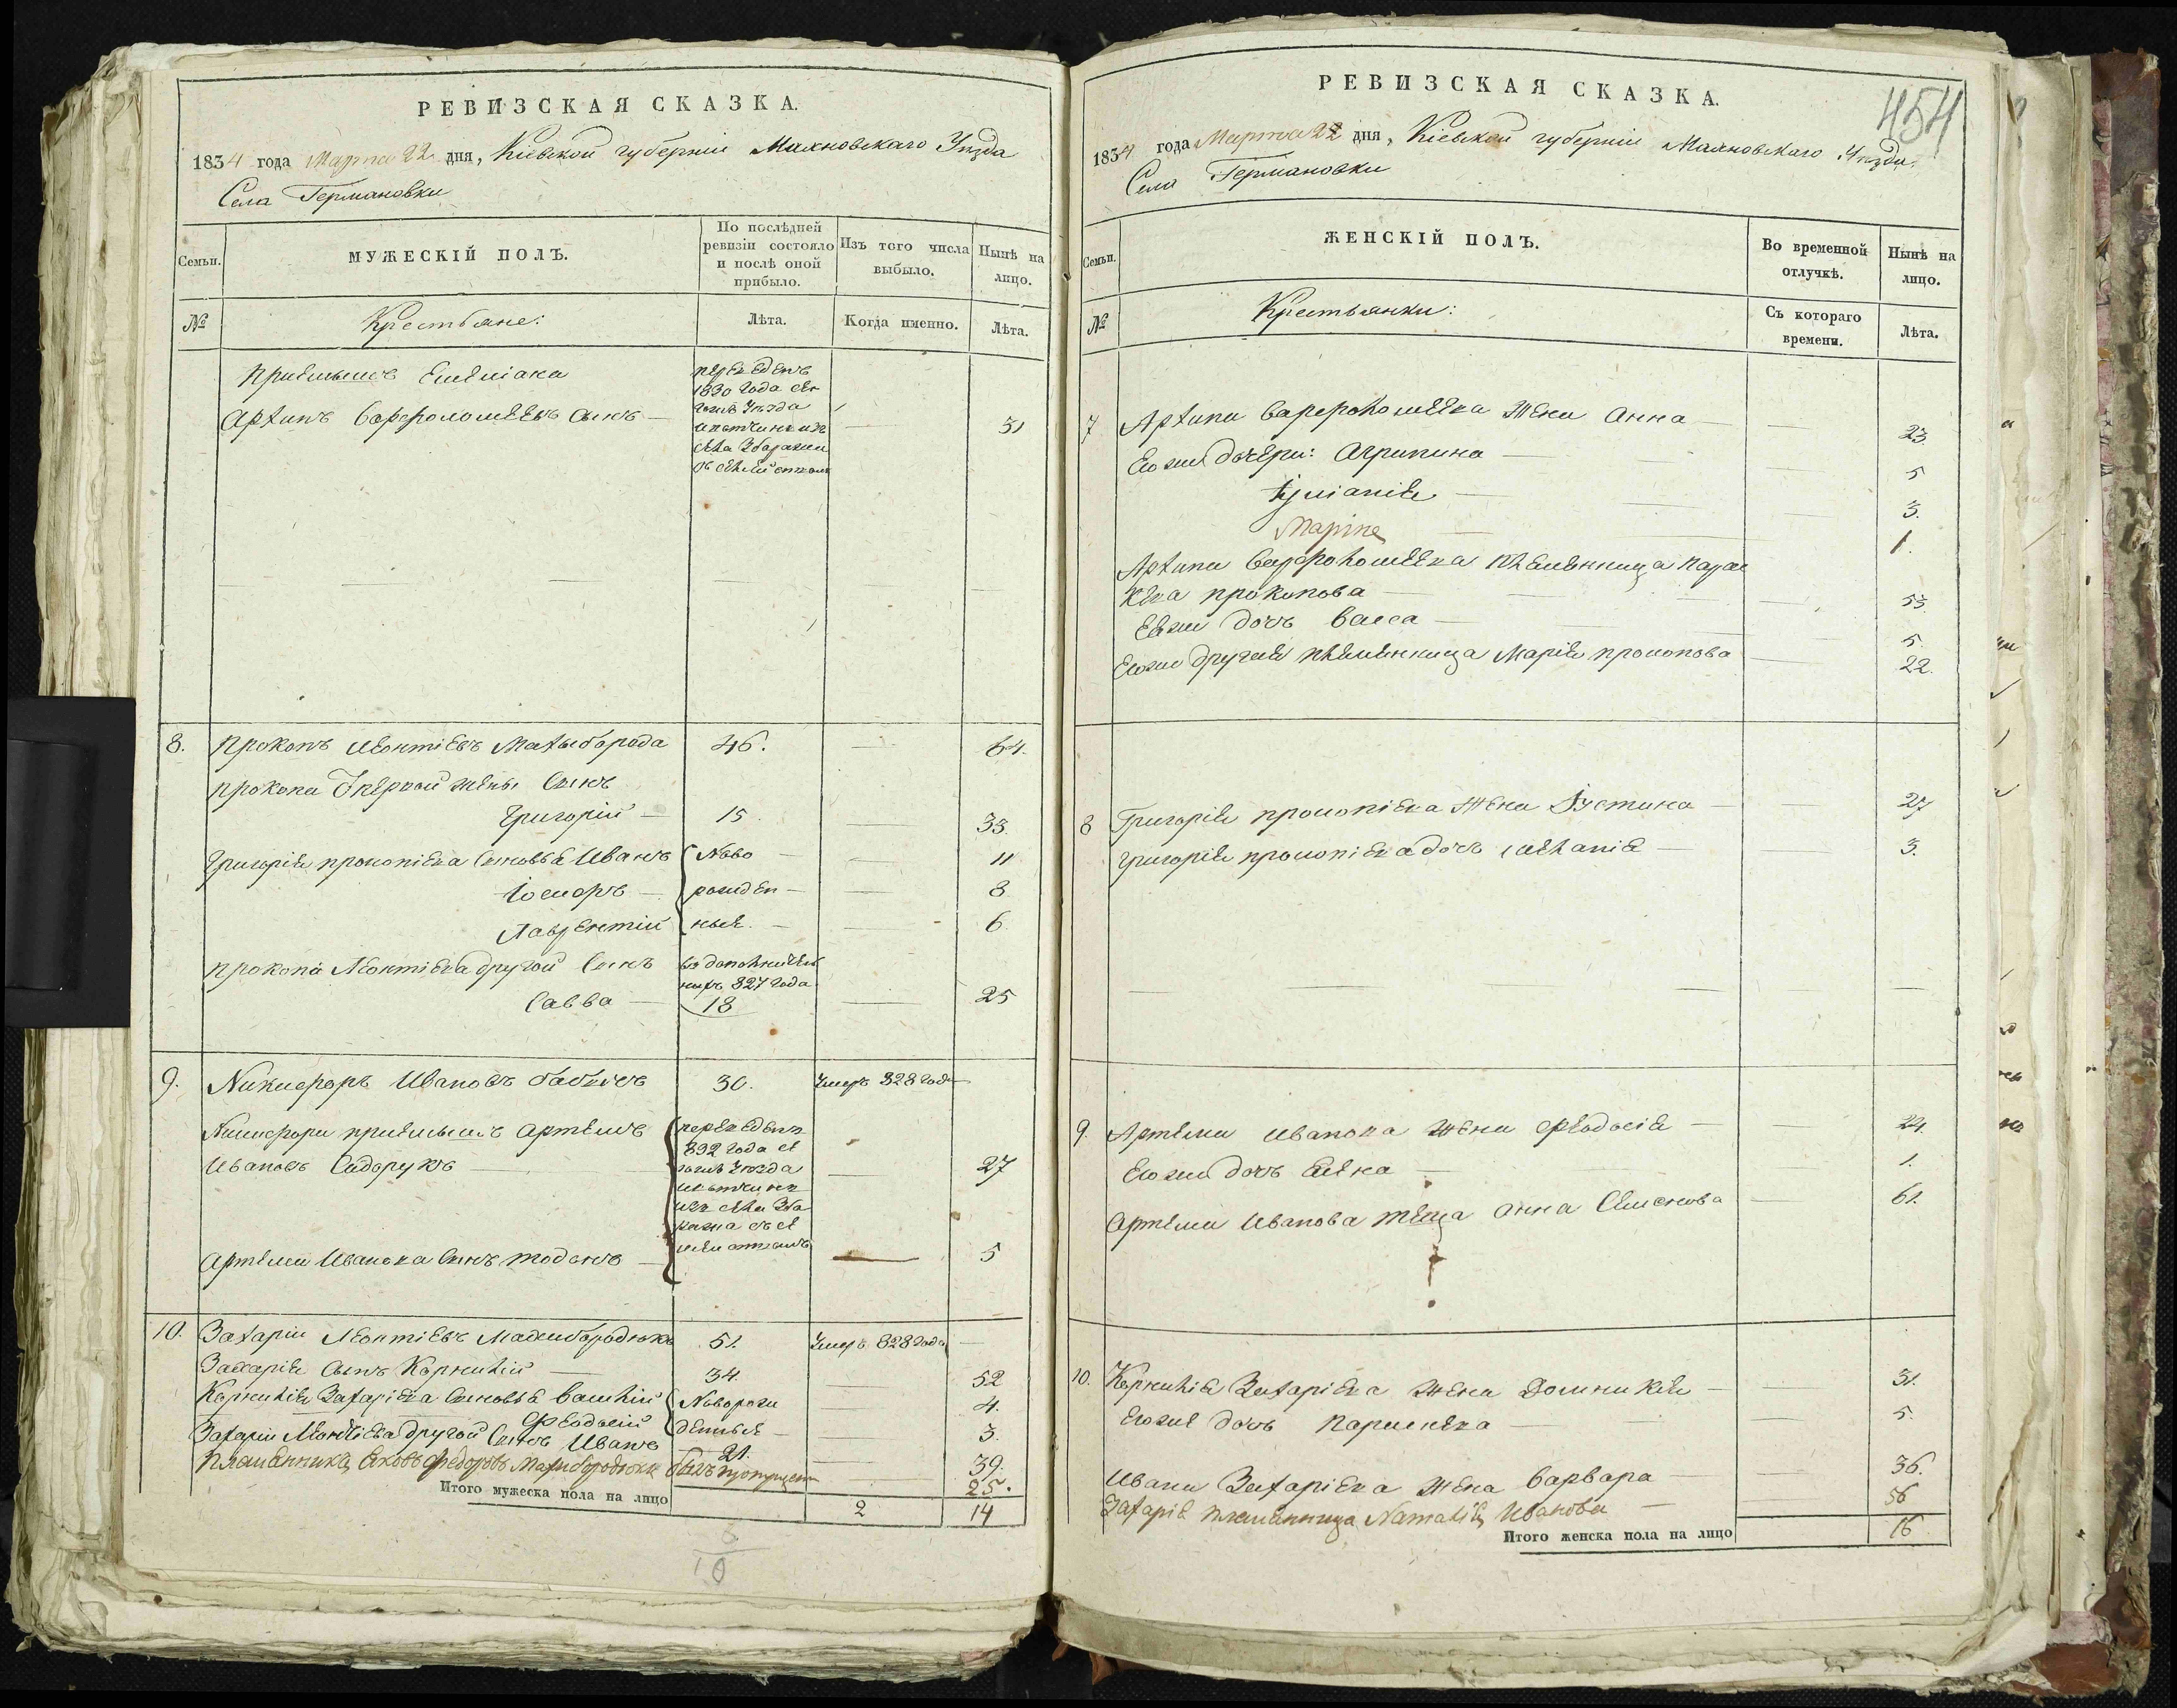 РЕВИЗСКАЯ СКАЗКА.
1834 года Марта 22 дня, Кіевской губерніи Махновскаго Уѣзда
Села Германовки
Семьи.
МУЖЕСКІЙ ПОЛЪ.
По послѣдней
ревизіи состояло
и послѣ оной
прибыло.
Изъ того числа
выбыло.
Нынѣ на
лицо.
№
Крестьяне:
Лѣта.
Когда именно.
Лѣта.
приемышъ
Архипъ Варфоломеевъ сынъ 31
переведенъ
1830 года
уезда
села Збаражи
8. Прокопъ Леонтіевъ Махиборода 46. 64.
Прокопа первой жены сынъ
Григорій 15. 33.
Григорія прокопіева сыновья Иванъ Ново 11
Іосифъ рожден 8
Лаврентій ные. 6.
прокопа Леонтіева другой сынъ
827 года
Савва 18 25
9. Никифоръ Ивановъ 30. Умеръ 828 года
Никифора приемышъ Артемъ переведенъ
832 года
Ивановъ Сидорукъ уезда 27
Артема Иванова сынъ 5
10. Захарій Леонтіевъ Махибородюкъ 51. Умеръ 828 года
Захарія сынъ Корнилій 34. 52
Корнилія Захаріева сыновья Василій Новорож 4.
Феодосій денные 3.
Захарія Леонтіева другой сынъ Иванъ 21. 39.
племянникъ Яковъ Федоровъ Махибородюкъ былъ пропущен 25.
Итого мужеска пола на лицо 2 14
6
10
454
РЕВИЗСКАЯ СКАЗКА.
1834 года Марта 22 дня, Кіевской губерніи Махновскаго Уѣзда.
Села Германовки
Семьи.
ЖЕНСКІЙ ПОЛЪ.
Во временной
отлучкѣ.
Нынѣ на
лицо.
№
Крестьянки:
Съ котораго
времени.
Лѣта.
7 Архипа Варфоломеева жена Анна 23.
Его же дочери: Агрипина 5
Іуліанія 3.
Марина 1.
Архипа Варфоломеева племянница Парас
кева прокопова 33.
Ея же дочь Васса 5.
Его же другая племянница Марія прокопова 22.
8 Григорія прокопіева жена Іустина 27
Григорія прокопіева дочь Меланія 3.
9. Артема Иванова жена Феодосія 24.
Его же дочь 1.
Артема Иванова теща Анна Семенова 61.
10. Корнилія Захаріева жена Доминикія 31.
Его же дочь Параскева 5.
Ивана Захаріева жена Варвара 36.
Захарія племянница Наталія Иванова 56
Итого женска пола на лицо 16